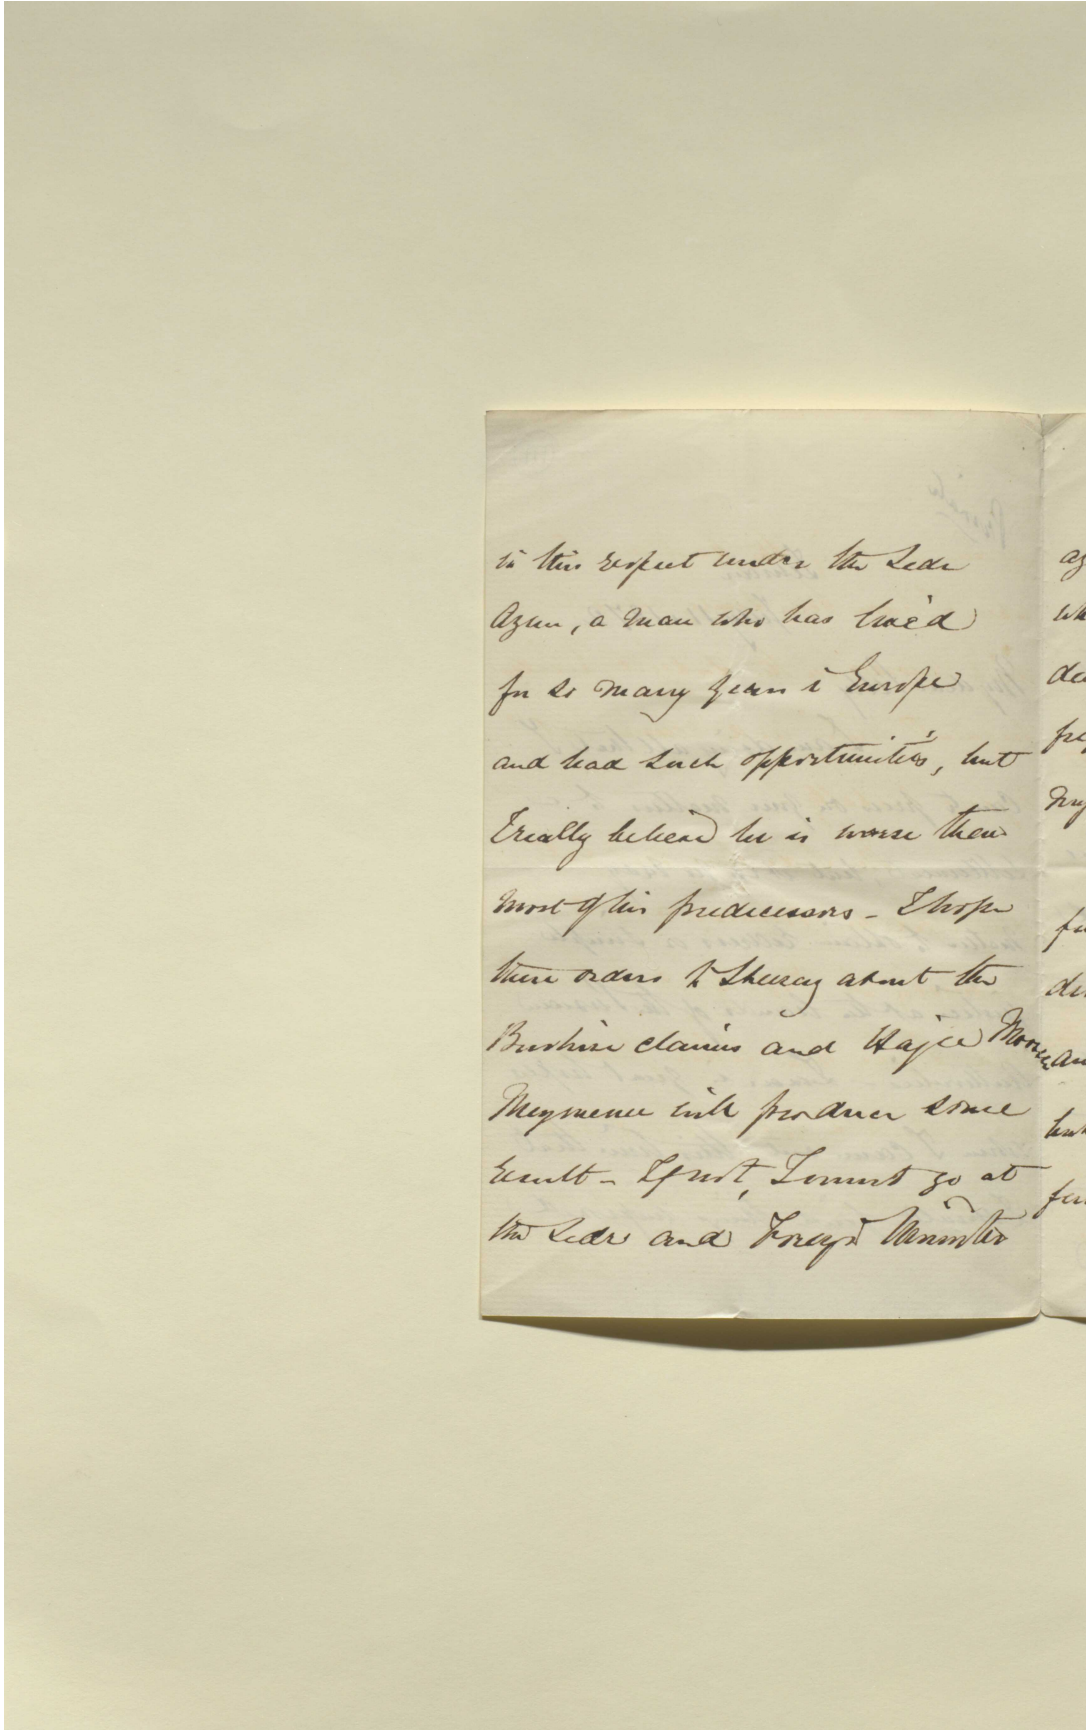 in this respect under the Sedr
Azem, a man who has lived
for so many years in Europe
and had such opportunities, but
I really believe he is worse than
most of his predecessors - I hope
these orders to about the
Bushire claims and Hajee
will produce some
result - If not, I must go at
the Sedr and Foreign Minister